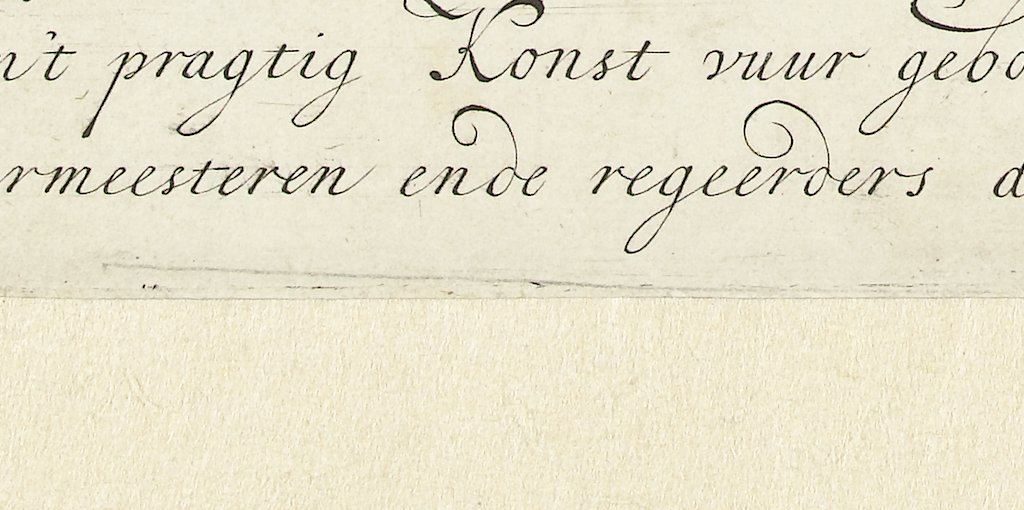 n't pragtig Konst vuur gebo
rmeesteren ende regeerders d